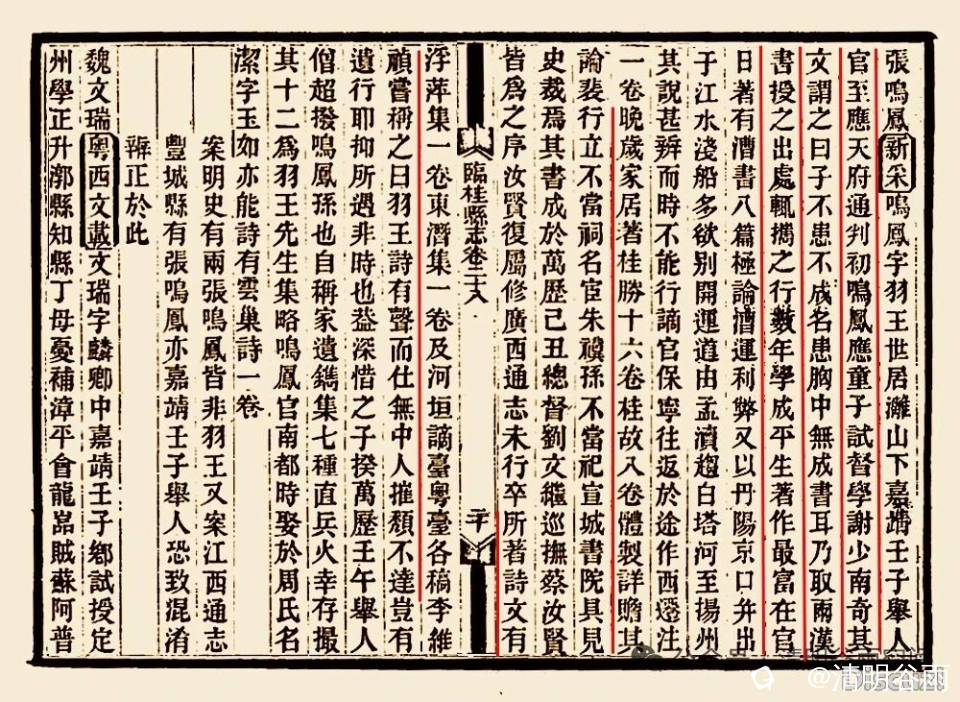 張鳴鳳新采鳴鳳字羽王世居灕山下嘉靖壬子舉人
官至應天府通判初鳴鳳應童子試督學謝少南奇其
文謂之曰子不患不成名患胸中無成書耳乃取兩漢
書授之出處輒攜之行數年學成平生著作最富在官
日著有漕書八篇極論漕運利弊又以丹陽京口幷出
于江水淺船多欲別開運道由孟瀆趨白塔河至揚州
其說甚辨而時不能行謫官保寧往返於途作西遷注
一卷晚歲家居著桂勝十六卷桂故八卷體製詳贍其
論裴行立不當祠名宦朱禩孫不當祀宣城書院具見
史裁焉其書成於萬歷己丑總督劉文繼巡撫蔡汝賢
皆爲之序汝賢復屬修廣西通志未行卒所著詩文有
臨桂縣志卷二十八
二十
浮萍集一卷東潛集一卷及河垣謫臺粵臺各稿李維
禎嘗稱之曰羽王詩有聲而仕無中人摧頽不達豈有
遺行耶抑所遇非時也葢深惜之子揆萬歷壬午舉人
僧超撥鳴鳳孫也自稱家遺鐫集七種直兵火幸存撮
其十二爲羽王先生集略鳴鳳官南都時娶於周氏名
潔字玉如亦能詩有雲巢詩一卷
案明史有兩張鳴鳳皆非羽王又案江西通志
豐城縣有張鳴鳳亦嘉靖壬子舉人恐致混淆
辨正於此
魏文瑞粵西文載文瑞字麟卿中嘉靖壬子鄉試授定
州學正升漷縣知縣丁母憂補漳平會龍嵓賊蘇阿普
@清明谷雨